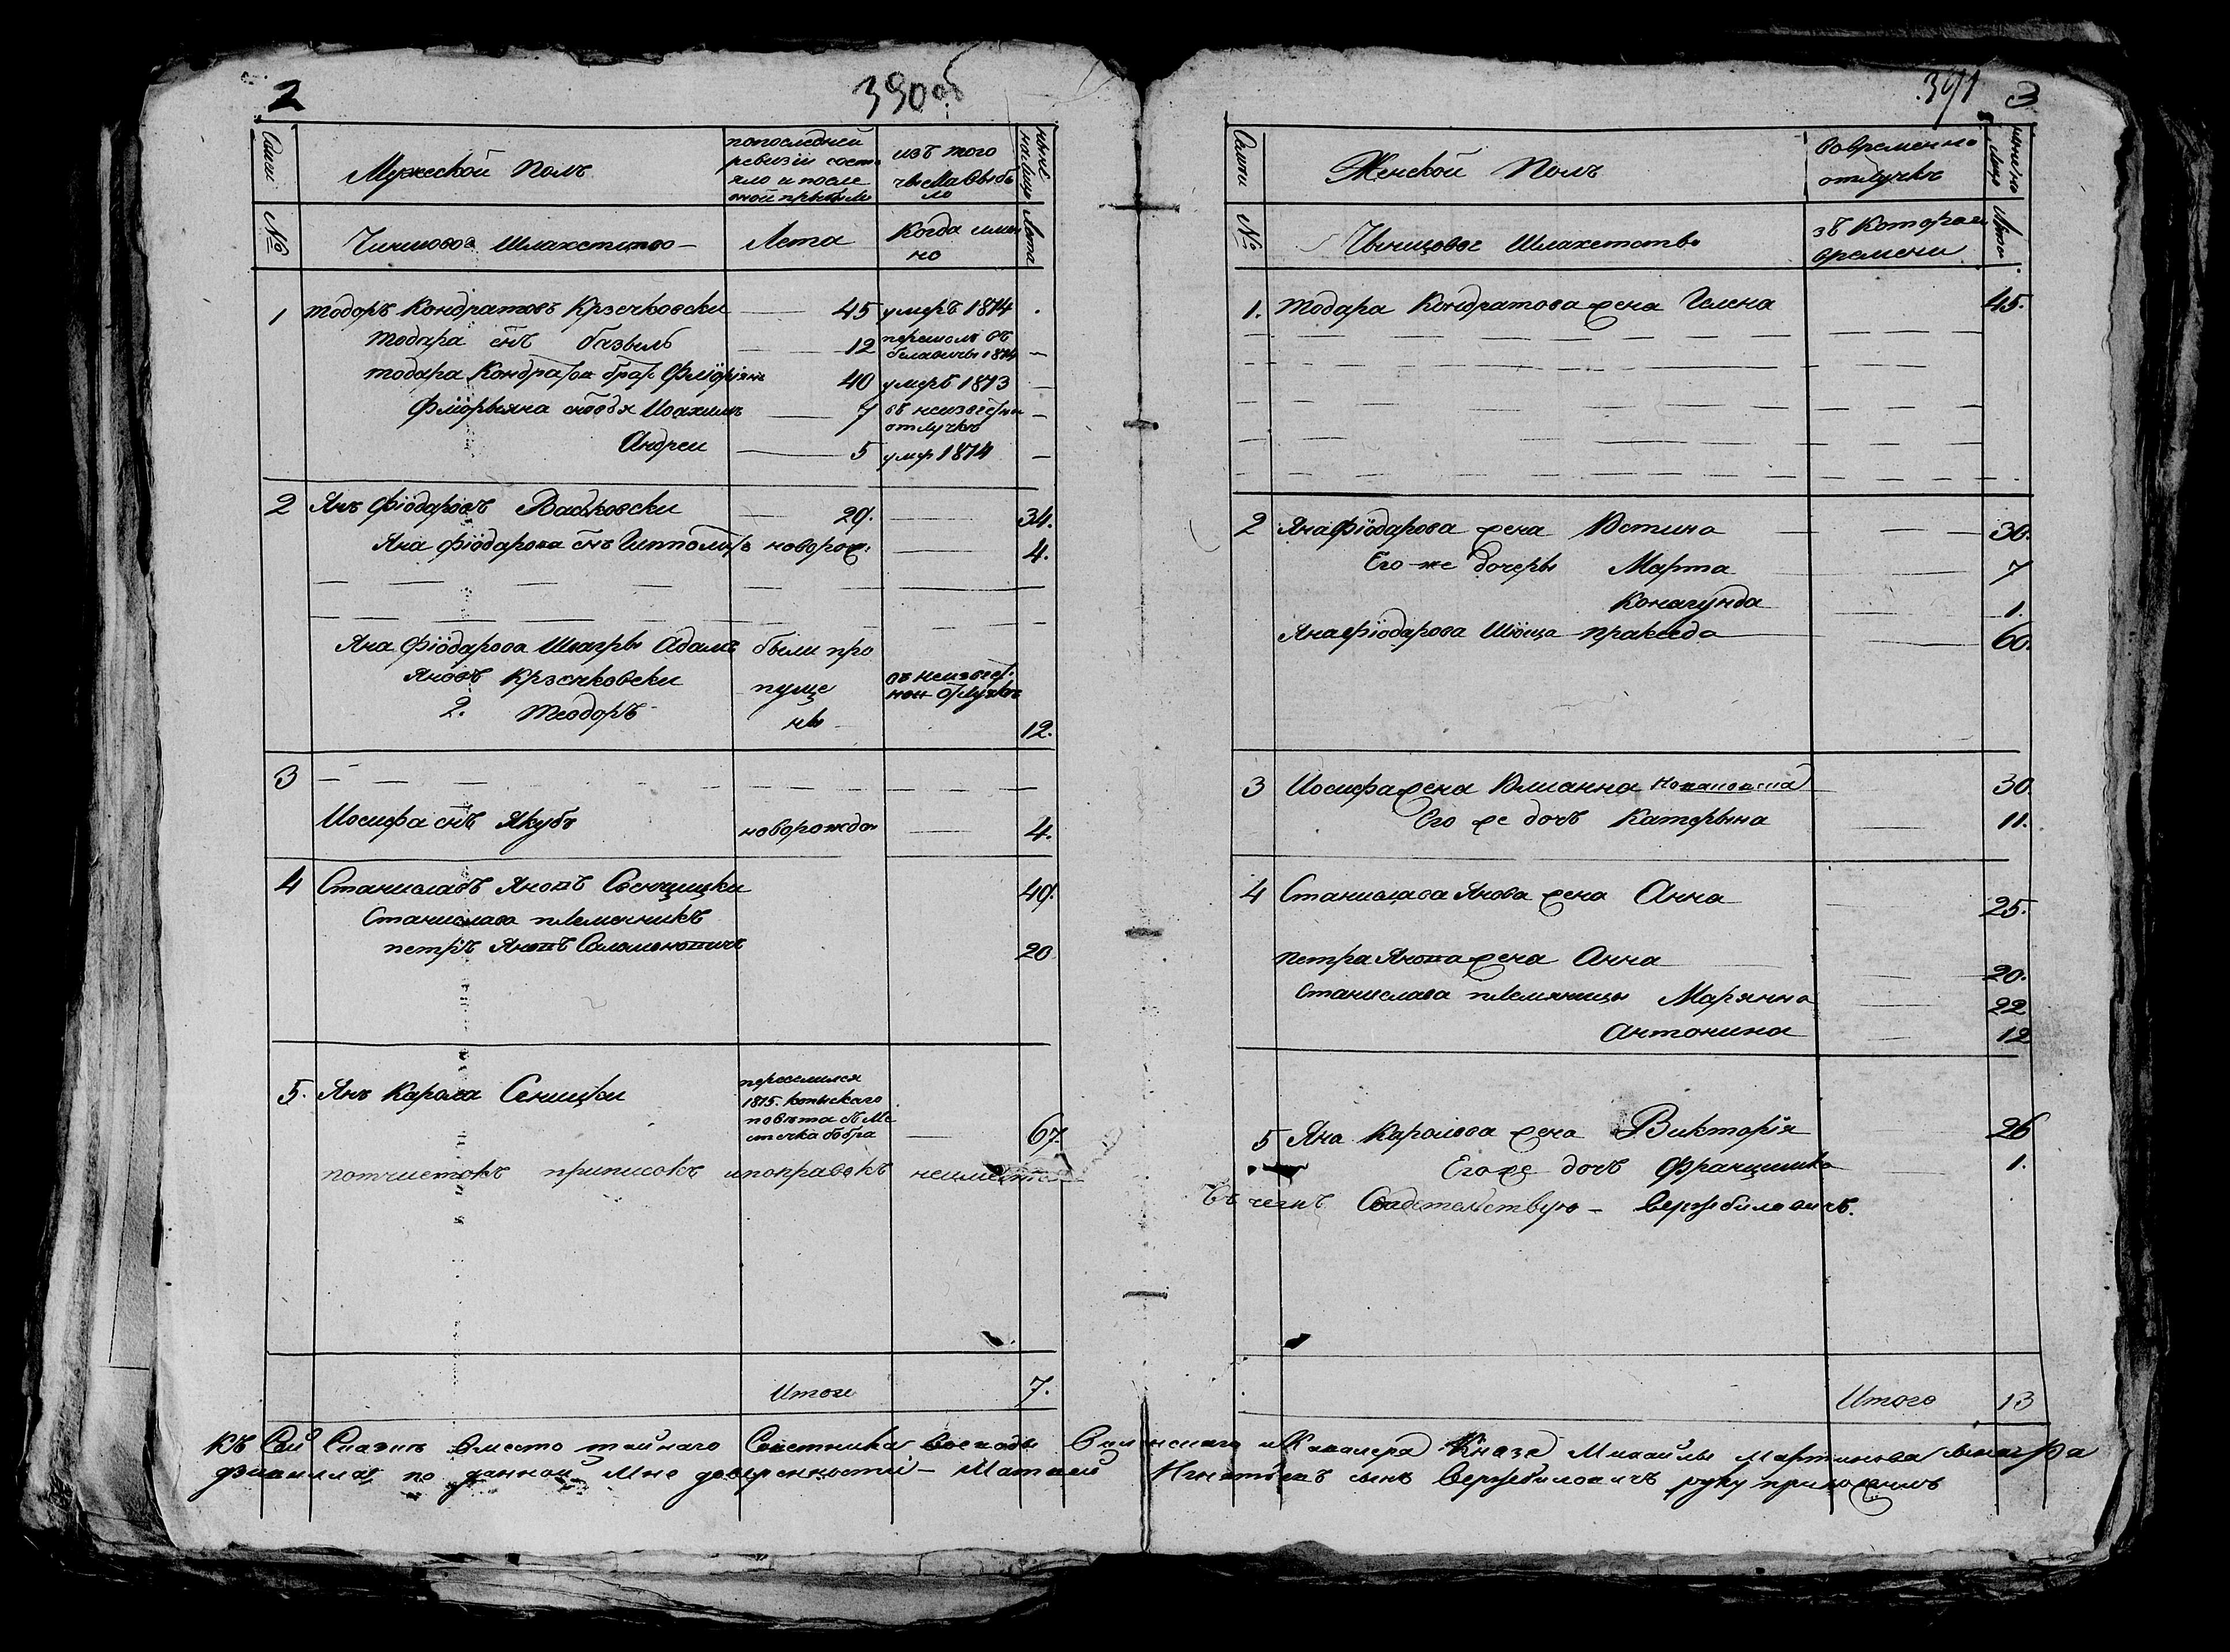 2
390об
Семи
Мужеской Полъ
попоследней
ревизiи состо
яло и после
оной прибыло
изъ того
числа выбы
ло
ныне
налицо
№
Чиншовое Шляхетство
Лета
Когда имен
но
Лета
1 тодоръ Кондратовъ Крзечковски 45 умеръ 1814
тодора снъ базыль 12 перешолъ въ
белавичы 1814
тодара Кондратов брат Флiорiянъ 40 умеръ 1813
Флiорыяна сыновья Иоахимъ 7 въ неизвестной
отлучке
Андреи 5 умер 1814
2 Янъ Фiодаровъ Васьковски 29. 34.
Яна Фiодарова снъ Гипполитъ новорож: 4.
Яна Фiодарова Швагры Адамъ были про
Яновъ Крзечковски пуще въ неизвест.
ной отлучке
2. Теодоръ ны 12.
3
Иосифа снъ Якубъ новорожден 4.
4 Станиславъ Яновъ Свенцицки 49.
Станислава племенникъ
петръ Яновъ Саламоновичъ 20
5. Янъ Карола Сеницки переселился
1815. копыскаго
повѣта съ Ме
стечка бобра 67.
потчистокъ приписокъ ипоправокъ неимеется
Итого 7.
391 3
Семги
Женской Полъ
вовременно
отлучке
ныне на
лицо
№
Чыншовое Шляхетство
зъ Котораго
времени
Лета
1. Тодара Кондратова жена Гелена 45.
2 Яна Фiодарова жена Юстина 30.
Его же дочеры Марта 7
Конагунда 1.
Яна Фiодарова Тiоща праксeда 60.
3 Иосифа жена Юлианна 30
Его же дочъ Катерына 11.
4 Станислава Янова жена Анна 25.
Петра Янова жена Анна 20.
Станислава племянницы Марянна 22
Антонина 12
5 Яна Каролова жена Викторiя 26
Его же дочъ Францишка 1.
въ чемъ Свидетельствую - Вержбиловичъ.
Итого 13
Къ Сей Сказке вместо тайнаго Советника Князя Михайлы Мартинова
по данной Мне доверенности - Матвей Игнатьевъ сынъ Вержбиловичъ руку приложилъ